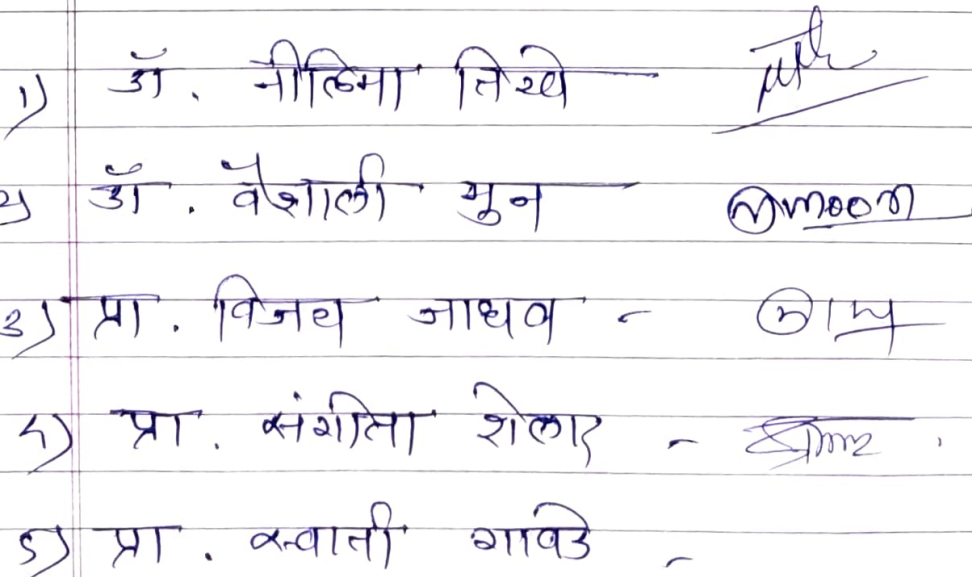 १) डॉ. नीलिमा तिखे
२) डॉ. वैशाली मुन moon
३) प्रा. विजय जाधव -
४) प्रा. संगीता शेलार -
५) प्रा. स्वाती गावडे -